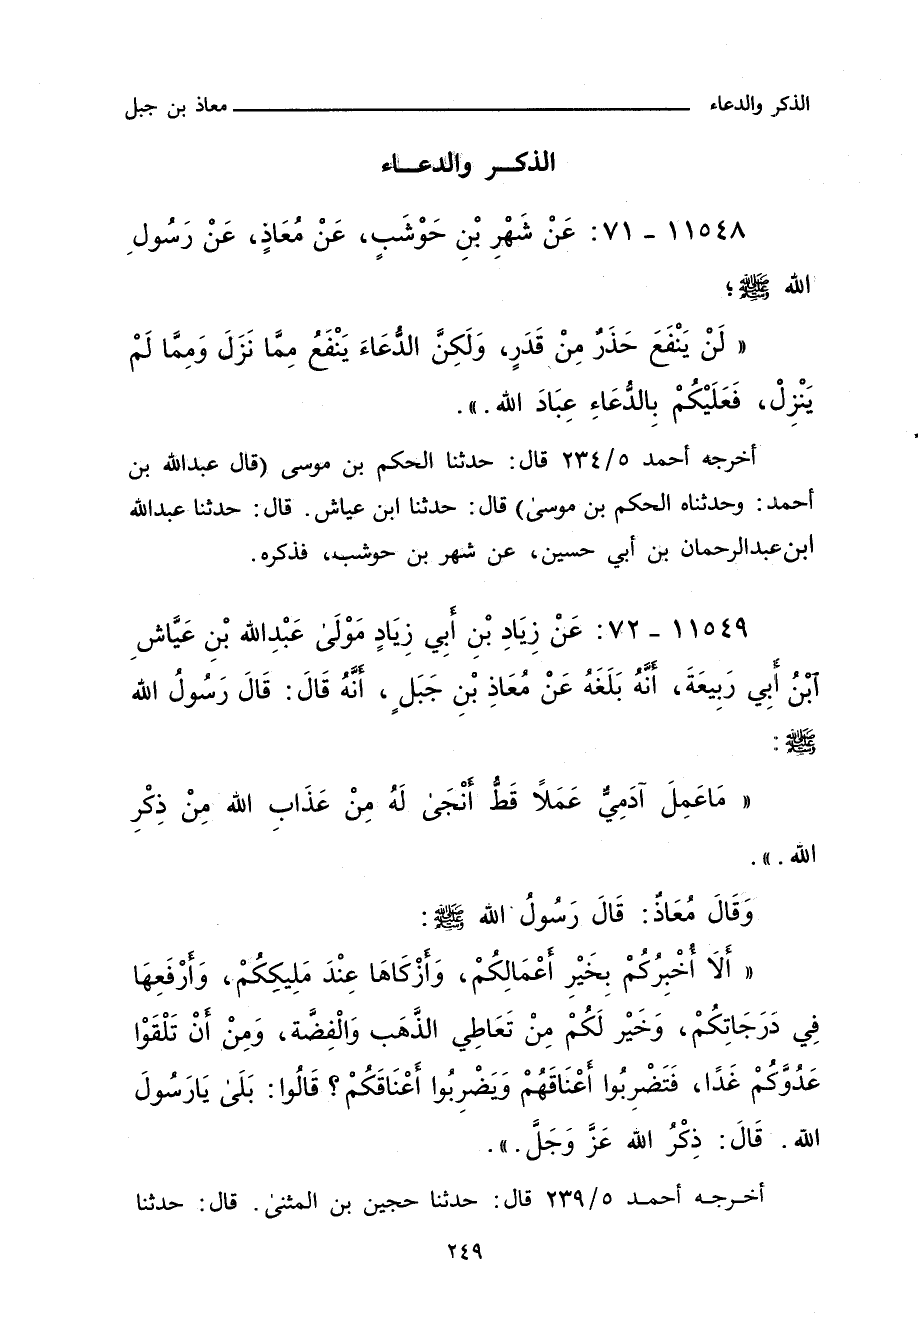 الذكر والدعاء ــــــــــــــــــــ معاذ بن جبل
الذكــر والدعــاء
١١٥٤٨ ـ ٧١: عَنْ شَهْرِ بْنِ حَوْشَبٍ، عَنْ مُعَاذٍ، عَنْ رَسُولِ
الله ﷺ؛
« لَنْ يَنْفَعَ حَذَرٌ مِنْ قَدَرٍ، وَلَكِنَّ الدُّعَاءَ يَنْفَعُ مِمَّا نَزَلَ وَمِمَّا لَمْ
يَنْزِلْ، فَعَلَيْكُمْ بِالدُّعَاءِ عِبَادَ الله .».
أخرجه أحمد ٢٣٤/٥ قال: حدثنا الحكم بن موسى (قال عبدالله بن
أحمد: وحدثناه الحكم بن موسىٰ) قال: حدثنا ابن عياش. قال: حدثنا عبدالله
ابن عبدالرحمان بن أبي حسين، عن شهر بن حوشب، فذكره.
١١٥٤٩ ـ ٧٢: عَنْ زِيَادِ بْنِ أَبِي زِيَادٍ مَوْلَىٰ عَبْدِالله بْنِ عَيَّاشِ
آبْنُ أَبِي رَبِيعَةَ، أَنَّهُ بَلَغَهُ عَنْ مُعَاذِ بْنِ جَبَلٍ، أَنَّهُ قَالَ: قَالَ رَسُولُ الله
ﷺ:
« مَاعَمِلَ آدَمِيٌّ عَمَلًا قَطُّ أَنْجَىٰ لَهُ مِنْ عَذَابِ الله مِنْ ذِكْرِ
الله .».
وَقَالَ مُعَاذٌ: قَالَ رَسُولُ الله ﷺ:
« أَلَا أُخْبِرُكُمْ بِخَيْرِ أَعْمَالِكُمْ، وَأَزْكَاهَا عِنْدَ مَلِيكِكُمْ، وَأَرْفَعِهَا
فِي دَرَجَاتِكُمْ، وَخَيْر لَكُمْ مِنْ تَعَاطِي الذَّهَب وَالْفِضَّة، وَمِنْ أَنْ تَلْقَوْا
عَدُوَّكُمْ غَدًا، فَتَضْرِبُوا أَعْنَاقَهُمْ وَيَضْرِبُوا أَعْنَاقَكُمْ؟ قَالُوا: بَلَىٰ يَارَسُولَ
الله. قَالَ: ذِكْرُ الله عَزَّ وَجَلَّ.».
أخـرجـه أحمـد ٢٣٩/٥ قال: حدثنا حجين بن المثنىٰ. قال: حدثنا
٢٤٩